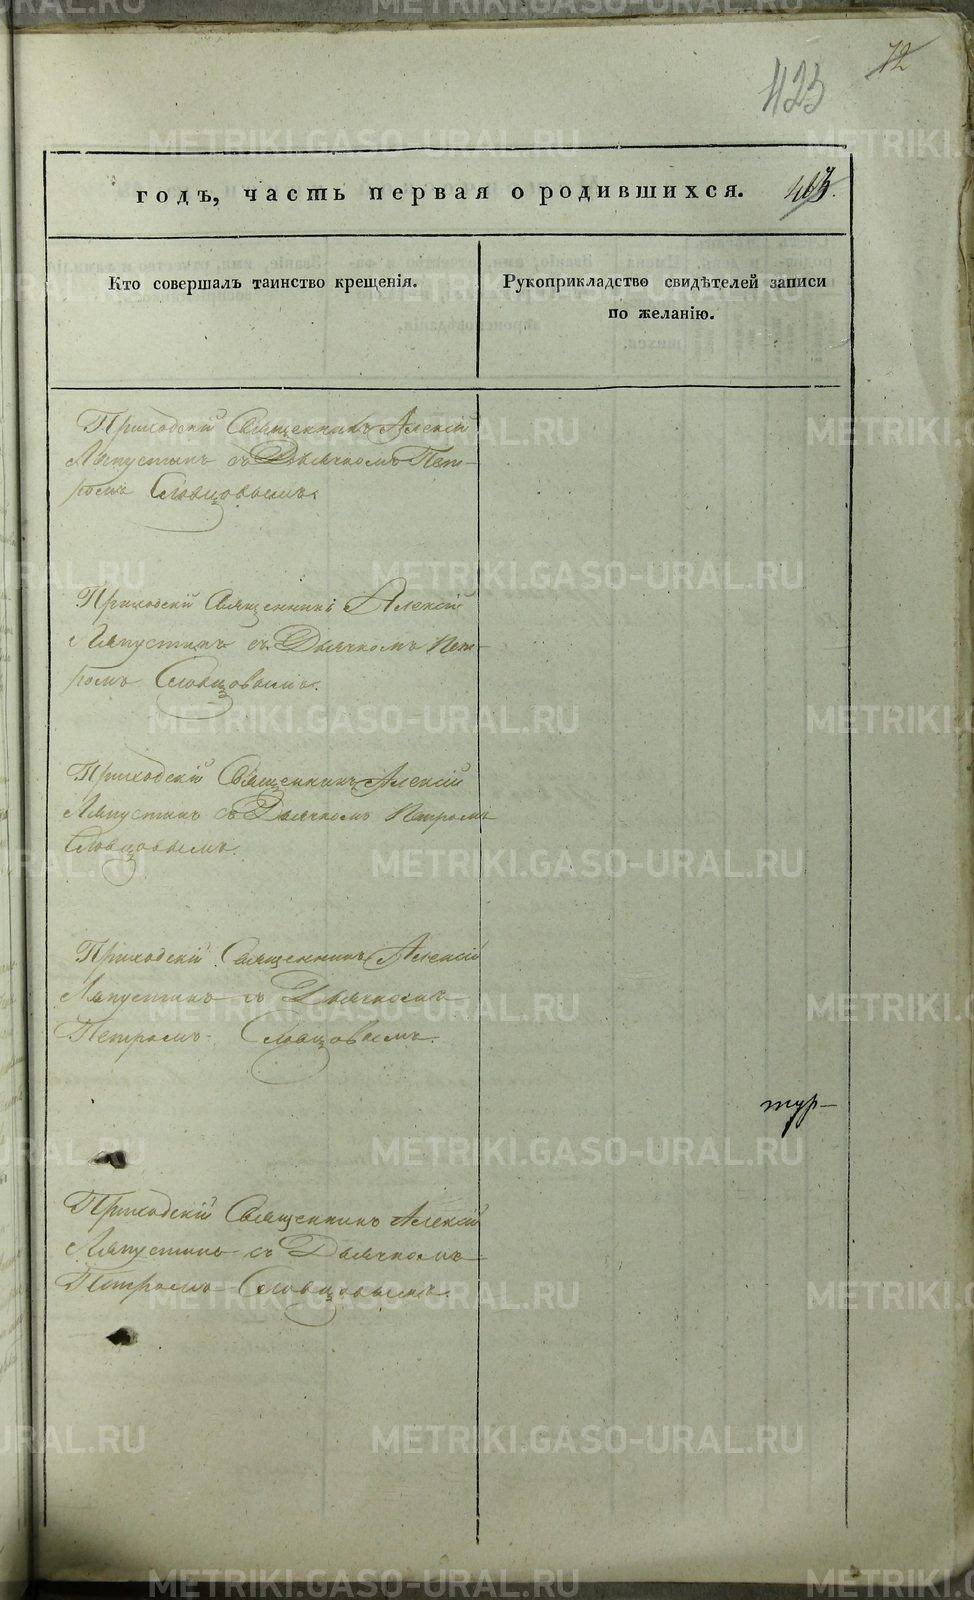 72
423
годъ, часть первая о родившихся.
Кто совершалъ таинство крещенія.
Рукоприкладство свидѣтелей записи
по желанію.
Приходскій Священникъ Алексій
Ляпустинъ съ Дьячкомъ Пет-
ромъ Словцовымъ.
Приходскій Священникъ Алексій
Ляпустинъ съ Дьячкомъ Пет-
ромъ Словцовымъ.
Приходскій Священникъ Алексій
Ляпустинъ съ Дьячкомъ Петромъ
Словцовымъ.
Приходскій Священникъ Алексій
Ляпустинъ съ Дьячкомъ
Петромъ Словцовымъ.
тур-
Приходскій Священникъ Алексій
Ляпустинъ съ Дьячкомъ
Петромъ Словцовымъ.
METRIKI.GASO-URAL.RU